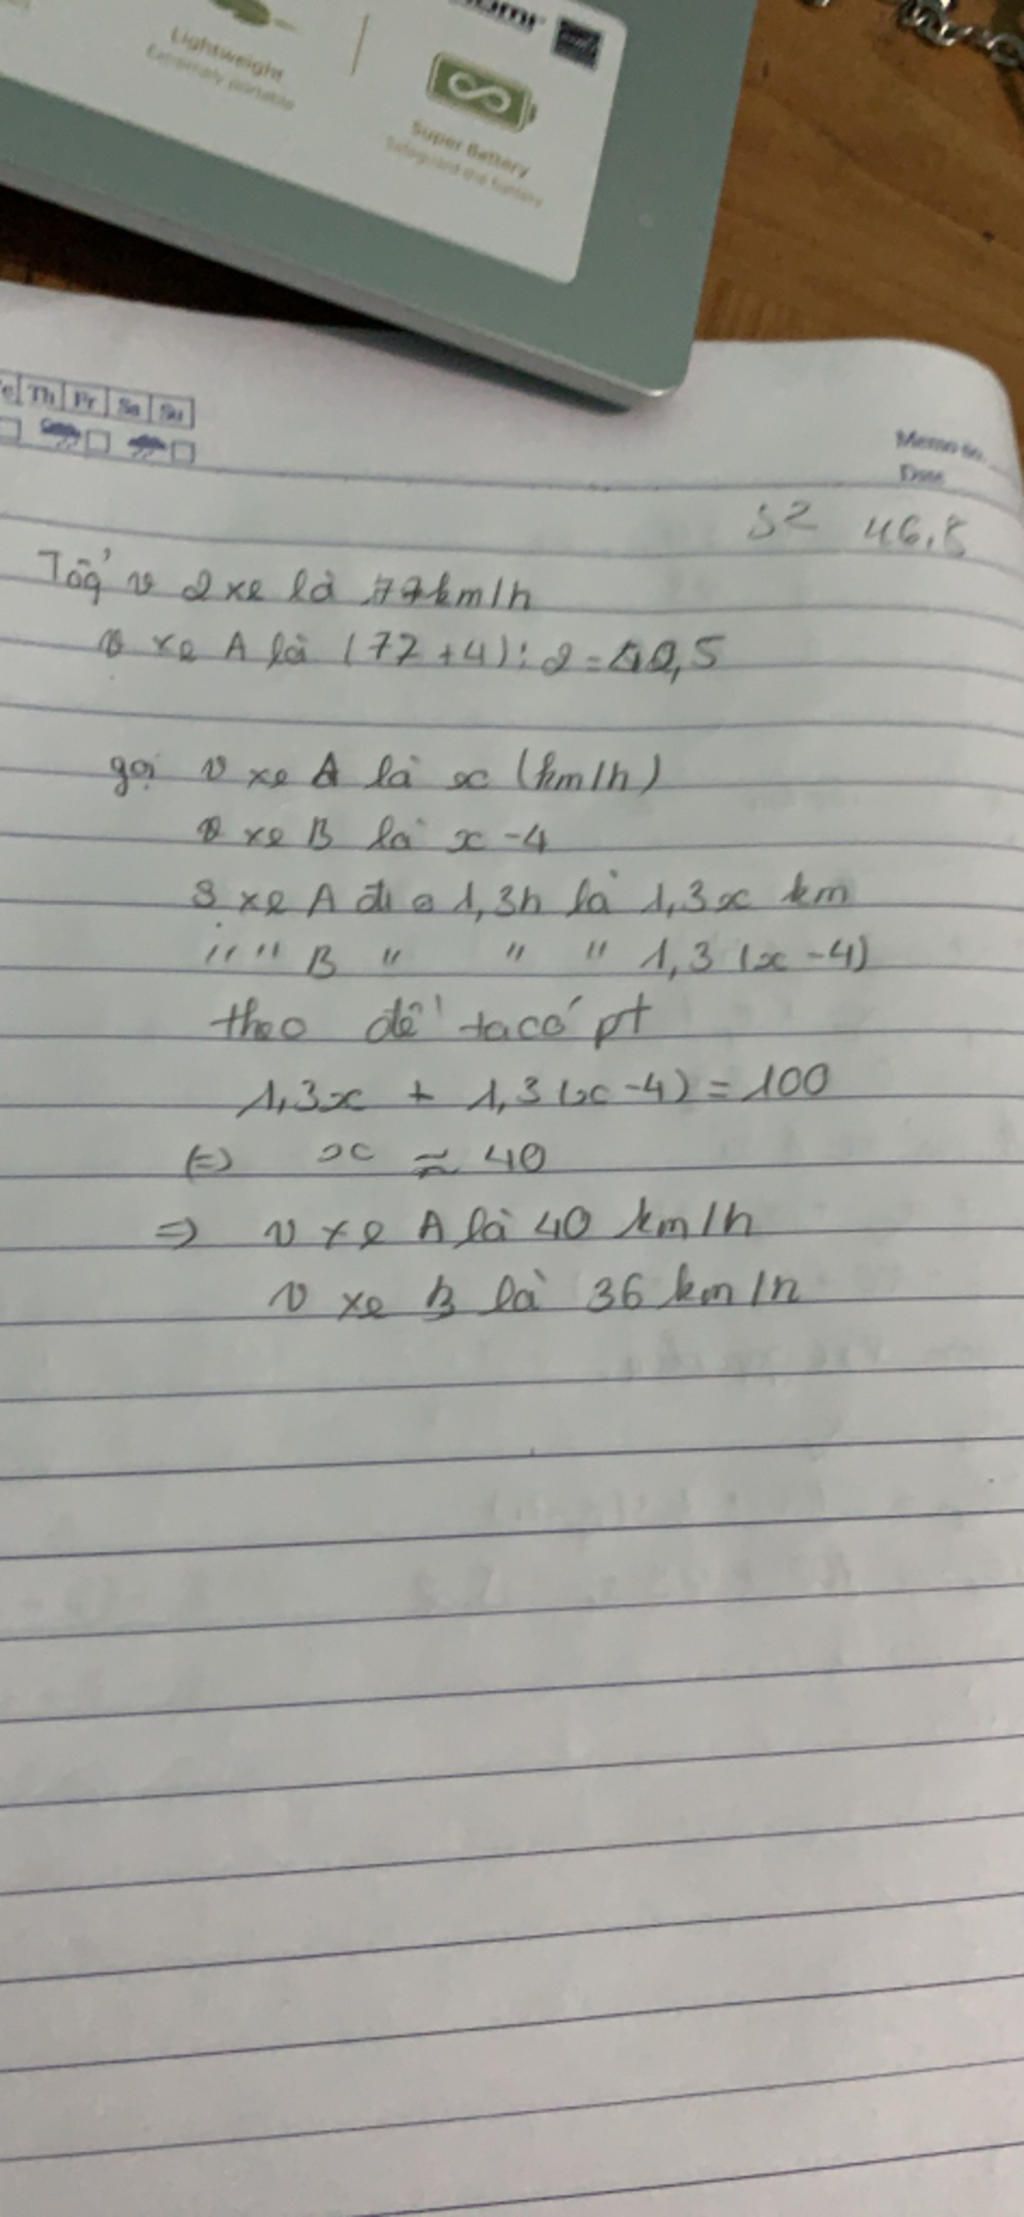 Lightweight
Extremely portable
Super Battery
Safeguard the battery
Th Fr Sa Su
Memo No.
Date
46,5
Tổng v 2 xe là 77 km/h
v xe A là (77 + 4) : 2 = 40,5
gọi v xe A là x (km/h)
v xe B là x - 4
S xe A đi 1,3h là 1,3x km
" " B " " " 1,3 (x - 4)
theo đề ta có pt
1,3x + 1,3 (x - 4) = 100
(=) x ≈ 40
=> v xe A là 40 km/h
v xe B là 36 km/h